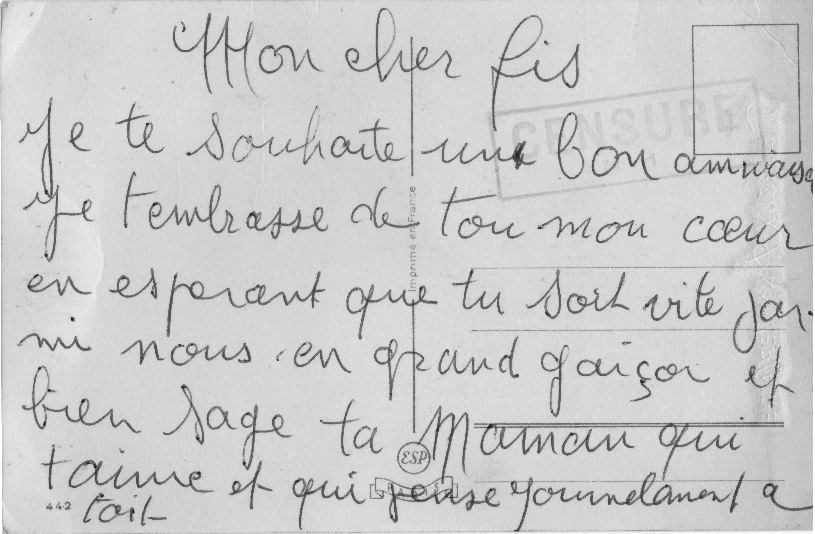 Mon cher fis
CENSURE
Je te souhaite une bon annivaise
Je t'embrasse de tou mon cœur
Imprimé en France
en esperant que tu soit vite par-
mi nous en grand gaiçon et
bien sage ta Maman qui
ESP
t'aime et qui pense journelament a
442
toit